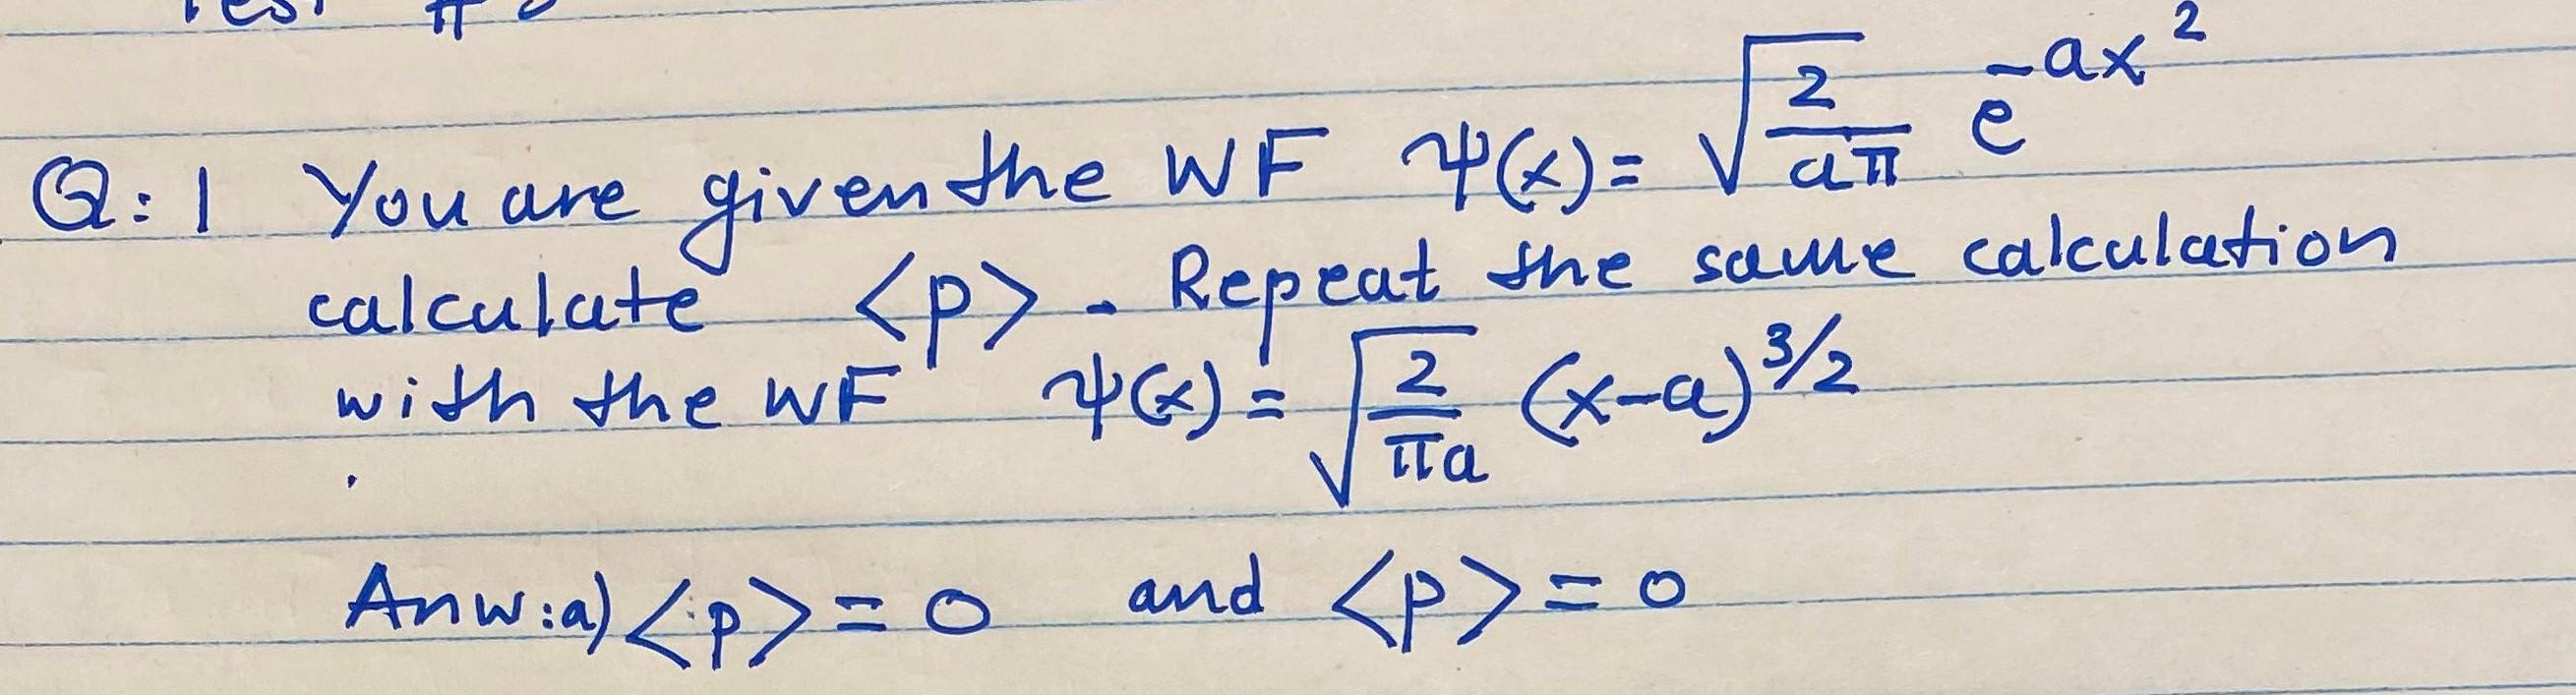 Q: 1 You are given the WF ψ(x) = √(2/aπ) e^(-ax²)
calculate <p> - Repeat the same calculation
with the WF ψ(x) = √(2/πa) (x-a)^(3/2)
Anw: a) <p> = 0 and <p> = 0